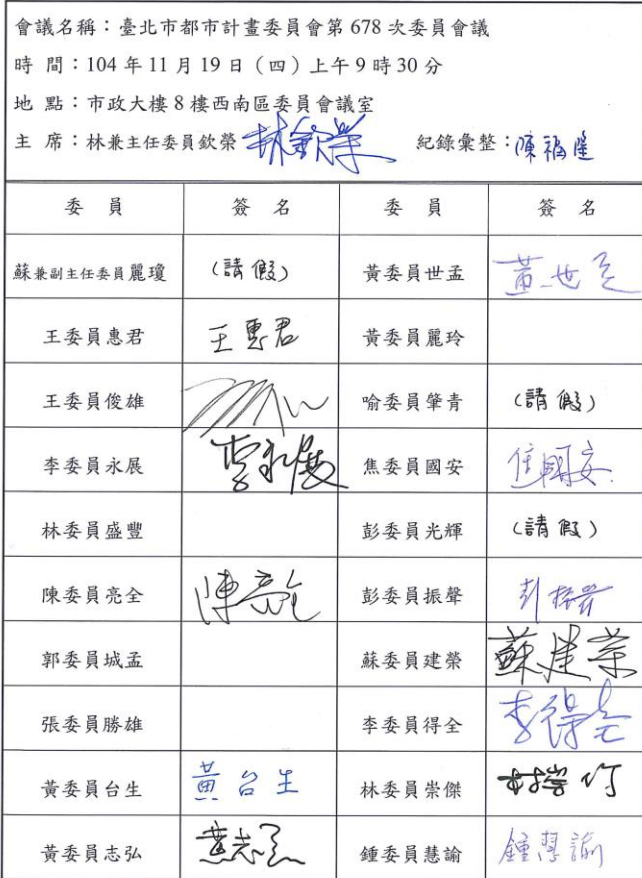 會議名稱：臺北市都市計畫委員會第 678 次委員會議
時 間：104 年 11 月 19 日（四）上午 9 時 30 分
地 點：市政大樓 8 樓西南區委員會議室
主 席：林兼主任委員欽榮 林欽榮 紀錄彙整：陳福隆
委 員 簽 名 委 員 簽 名
蘇兼副主任委員麗瓊 (請假) 黃委員世孟 黃世孟
王委員惠君 王惠君 黃委員麗玲
王委員俊雄 喻委員肇青 (請假)
李委員永展 李永展 焦委員國安 焦國安
林委員盛豐 彭委員光輝 (請假)
陳委員亮全 陳亮全 彭委員振聲 彭振聲
郭委員城孟 蘇委員建榮 蘇建榮
張委員勝雄 李委員得全 李得全
黃委員台生 黃台生 林委員崇傑 林崇傑
黃委員志弘 黃志弘 鍾委員慧諭 鍾慧諭